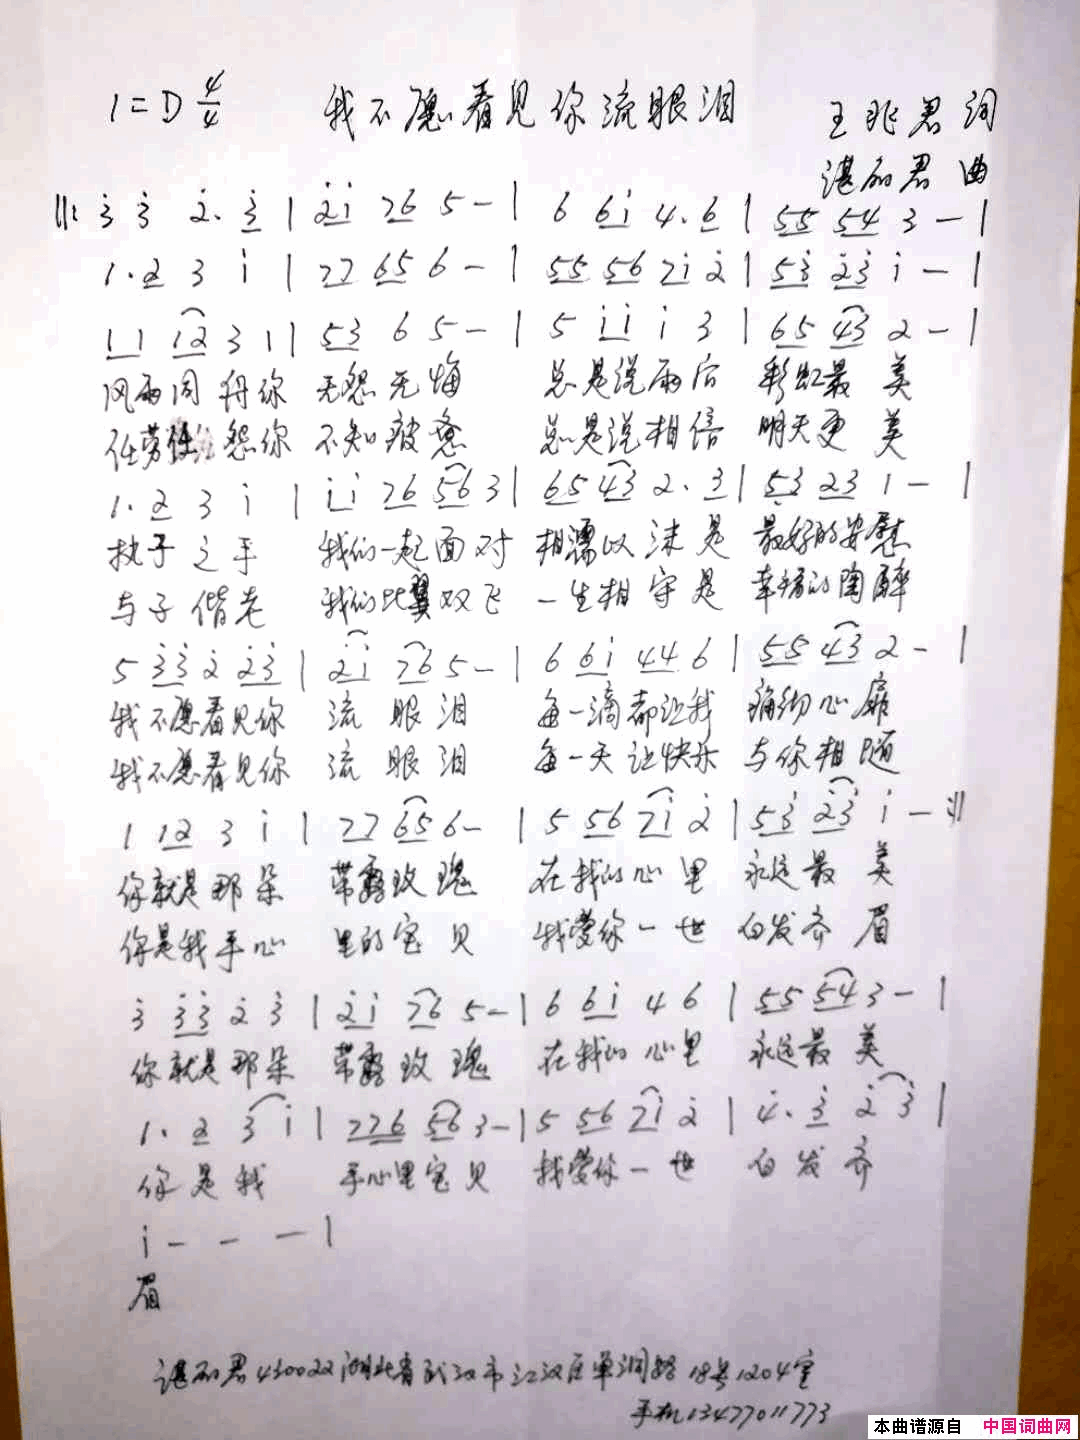 1=D 4/4 我不愿看见你流眼泪 王兆君词
谌丽君 曲
‖: 3̇ 3̇ 2̇. 3̇ | 2̇1̇ 76 5 - | 6 61̇ 4. 6 | 55 54 3 - |
1. 2 3 1̇ | 77 65 6 - | 55 56 71̇ 2̇ | 53̇ 2̇3̇ 1̇ - |
11 12 3 1 | 53 6 5 - | 5 1̇1̇ 1̇ 3 | 65 43 2 - |
风雨同舟你 无怨无悔 总是说雨后 彩虹最 美
任劳任怨你 不知疲惫 总是说相信 明天更 美
1. 2 3 1̇ | 1̇1̇ 76 56 3 | 65 43 2. 3 | 53 23 1 - |
执子之手 我们一起面对 相濡以沫是 最好的安慰
与子偕老 我们比翼双飞 一生相守是 幸福的陶醉
5 3̇3̇ 2̇ 2̇3̇ | 2̇1̇ 76 5 - | 6 61̇ 44 6 | 55 43 2 - |
我不愿看见你 流 眼 泪 每一滴都让我 痛彻心扉
我不愿看见你 流 眼 泪 每一天让快乐 与你相随
1 12 3 1̇ | 77 65 6 - | 5 56 71̇ 2̇ | 53̇ 2̇3̇ 1̇ - :‖
你就是那朵 带露玫瑰 在我的心里 永远最 美
你是我手心 里的宝贝 我爱你一世 白发齐 眉
3̇ 3̇3̇ 2̇ 3̇ | 2̇1̇ 76 5 - | 6 61̇ 4 6 | 55 54 3 - |
你就是那朵 带露玫瑰 在我的心里 永远最 美
1. 2 3 1̇ | 776 56 3 - | 5 56 71̇ 2̇ | 4̇. 3̇ 2̇ 3̇ |
你是我 手心里宝贝 我爱你一世 白发齐
1̇ - - - |
眉
谌丽君430022湖北省武汉市江汉区单洞路18号1204室
手机13477011773
本曲谱源自 中国词曲网